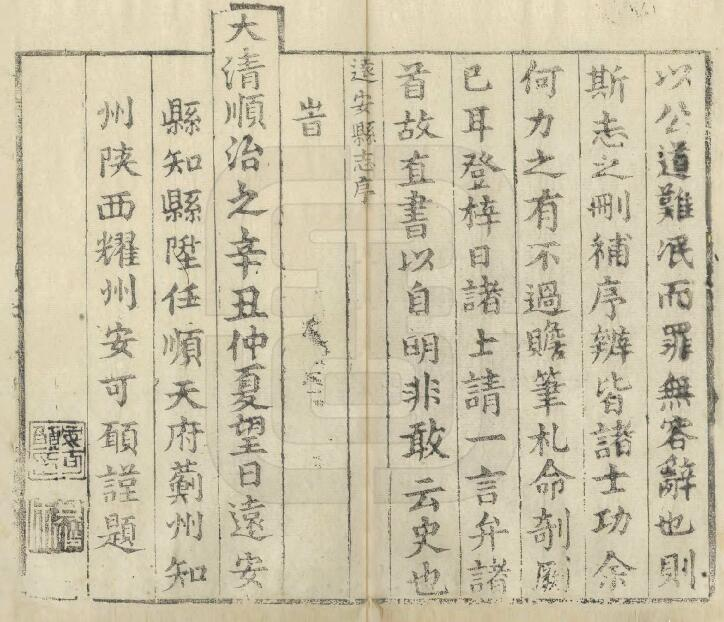 以公道難泯而罪無容辭也則
斯志之刪補序辦皆諸士功余
何力之有不過贍筆札命剞劂
已耳登梓日諸士請一言弁諸
首故直書以自明非敢云史也
遠安縣志序
旹
大清順治之辛丑仲夏望日遠安
縣知縣陞任順天府薊州知
州陝西耀州安可願謹題